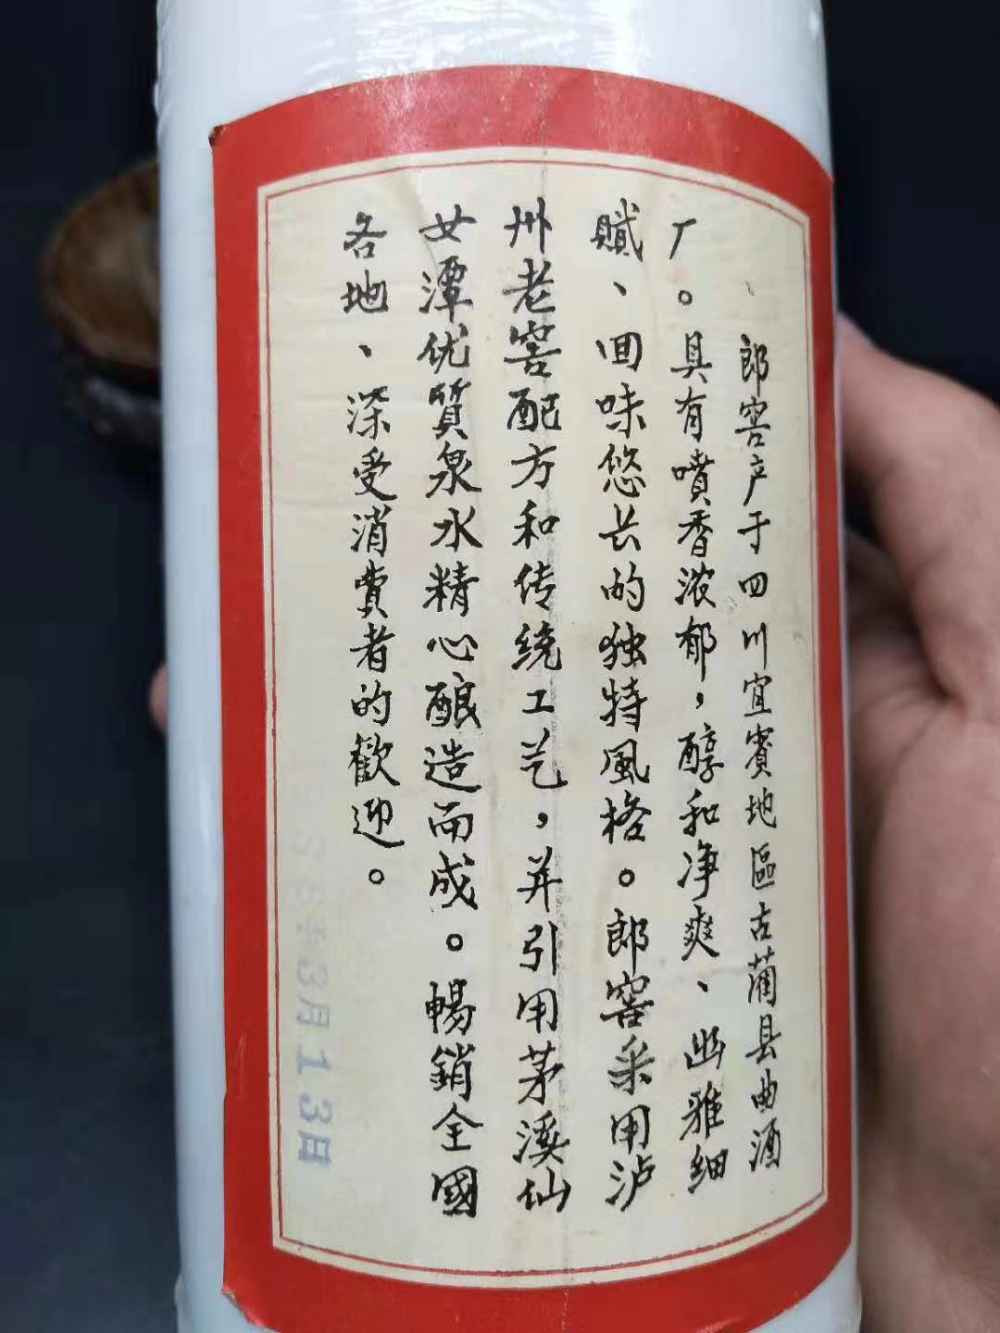 郎窖产于四川宜賓地區古蔺县曲酒
厂。具有噴香浓郁，醇和净爽、幽雅细
腻、回味悠长的独特風格。郎窖采用泸
州老窖配方和传统工艺，并引用茅溪仙
女潭优質泉水精心酿造而成。暢銷全國
各地、深受消費者的歡迎。
3月13日